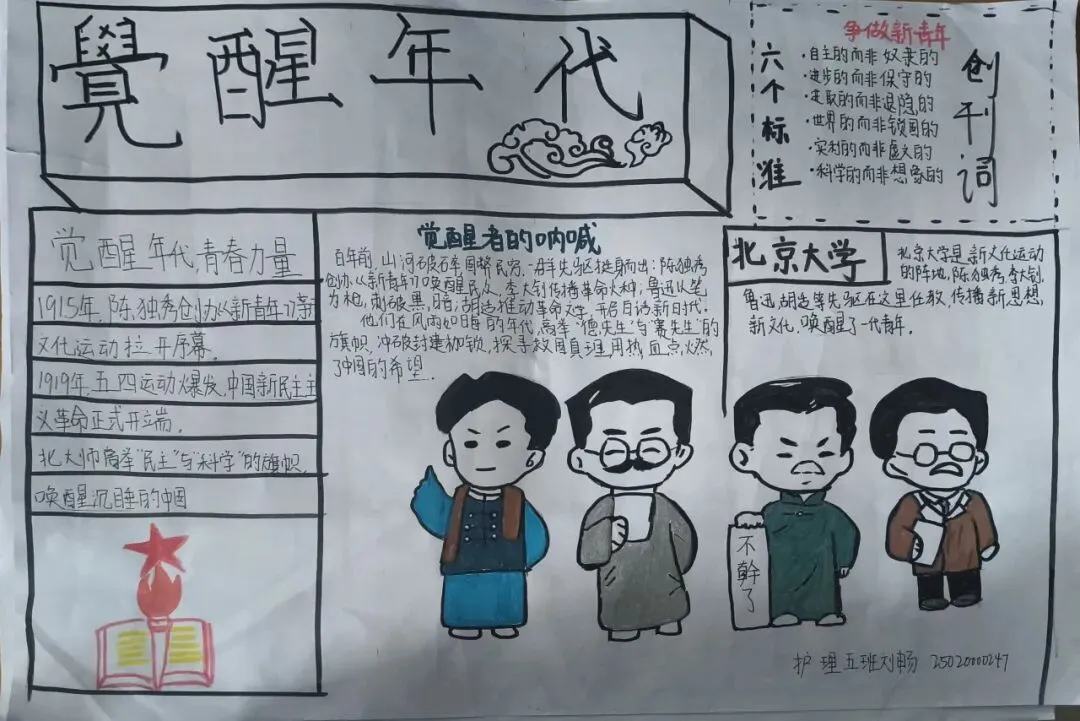 覺醒年代
争做新青年
六个标准
·自主的而非奴隶的
·进步的而非保守的
·进取的而非退隐的
·世界的而非锁国的
·实利的而非虚文的
·科学的而非想象的
创刊词
觉醒年代,青春力量
1915年,陈独秀创办《新青年》等
文化运动拉开序幕。
1919年,五四运动爆发,中国新民主主
义革命正式开端。
北大师高举"民主"与"科学"的旗帜,
唤醒沉睡的中国
觉醒者的呐喊
百年前,山河破碎国弊民穷,一群先驱挺身而出:陈独秀
创办《新青年》唤醒民众,李大钊传播革命火种,鲁迅以笔
为枪,刺破黑暗;胡适推动革命文学,开启白话新时代。
他们在风雨如晦的年代,高举"德先生"与"赛先生"的
旗帜,冲破封建枷锁,探寻救国真理,用热血点燃
了中国的希望.
北京大学
北京大学是新文化运动
的阵地,陈独秀,李大钊,
鲁迅胡适等先驱在这里任教,传播新思想,
新文化,唤醒了一代青年。
不幹了
护理五班刘畅 25020000247